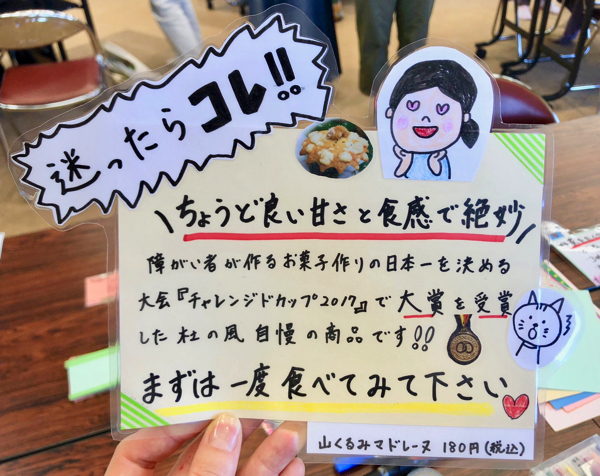 迷ったらコレ!!
\ちょうど良い甘さと食感で絶妙/
障がい者が作るお菓子作りの日本一を決める
大会『チャレンジドカップ2017』で大賞を受賞
した杜の風自慢の商品です!!
まずは一度食べてみて下さい
山くるみマドレーヌ 180円(税込)